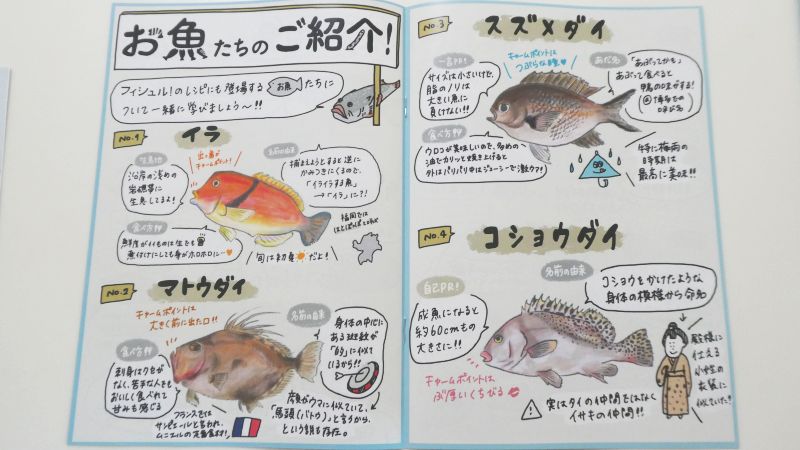 お魚たちのご紹介!
フィシュル!のレシピにも登場するお魚たちに
ついて一緒に学びましょう〜!!
No.1
イラ
生息地
沿岸の浅めの
岩礁帯に
生息してるよ!
出っ歯が
チャームポイント!
名前の由来
捕まえようとすると逆に
かみつきにくるので、
「イライラする魚」
→「イラ」に?!
食べ方
鮮度がイイものは生でも
煮付けにしても身がホロホロに…
旬は初夏だよ!
福岡では
No.2
マトウダイ
チャームポイントは
大きく前に出た口!!
食べ方
刺身はクセが
なく、苦手な人も
おいしく食べれて
甘みも感じる
フランスでは
サンピエールと言われ、
ムニエルの定番食材!
名前の由来
身体の中心に
ある斑紋が
「的」に似て
いるから!!
顔がウマに似ていて、
「馬頭(バトウ)」と言うから、
という説も存在。
No.3
スズメダイ
一言PR!
サイズは小さいけど、
脂のノリは
大きい魚に
負けない!!
チャームポイントは
つぶらな瞳♥
あだ名
「あぶってかも」
あぶって食べると
鴨の味がする!
食べ方
ウロコが美味しいので、多めの
油でカリッと焼き上げると
外はパリパリ中はジューシーで激ウマ!
特に梅雨の
時期は
最高に美味!!
No.4
コショウダイ
自己PR!
成魚になると
約60cmもの
大きさに!!
名前の由来
コショウをかけたような
身体の模様から命名
殿様に
仕える
小姓の
衣装に
似ていた!
チャームポイントは、
ぶ厚いくちびる
実はタイの仲間ではなく
イサキの仲間!!